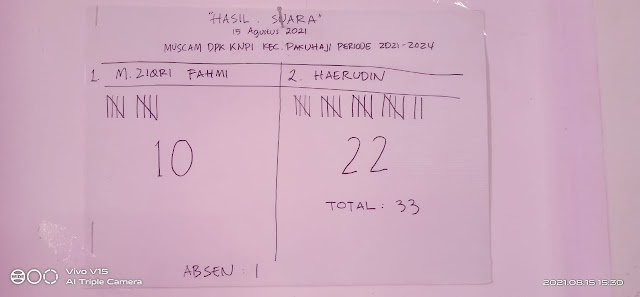 "HASIL . SUARA"
15 Agustus 2021
MUSCAM DPK KNPI KEC. PAKUHAJI PERIODE 2021-2024
1. M. ZIQRI FAHMI
10
2. HAERUDIN
22
TOTAL : 33
ABSEN : 1
Vivo V15
AI Triple Camera
2021.08.15 15:30